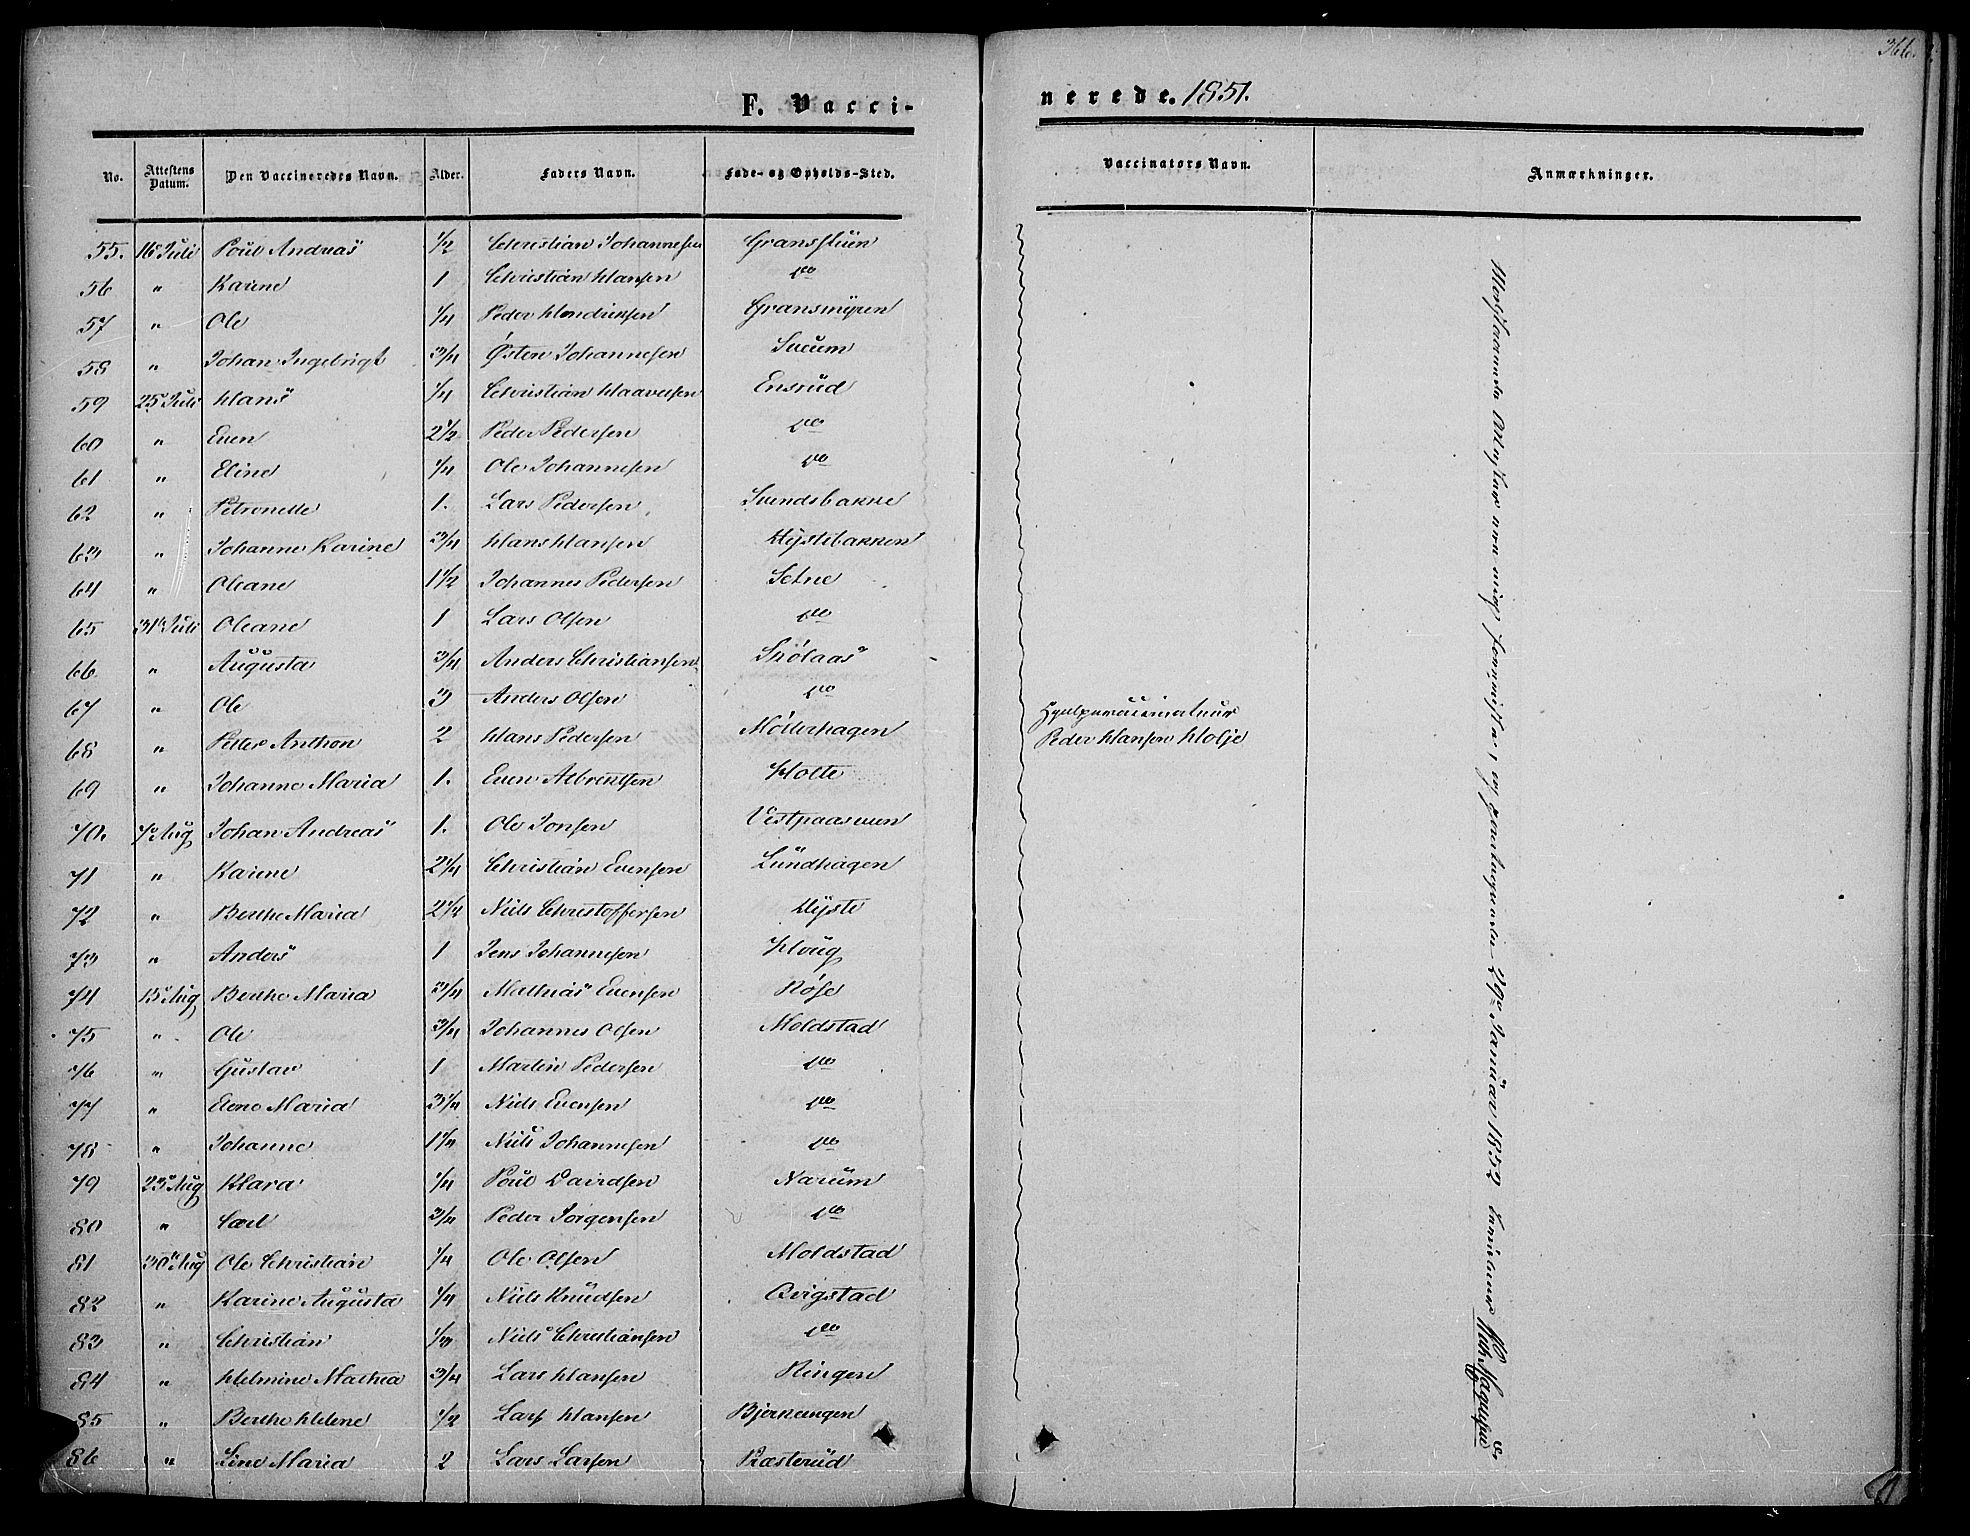 366.
F. Vaccinerede. 1851.
No. Attestens Datum. Den Vaccineredes Navn. Alder. Faders Navn. Føde- og Opholds-Sted. Vaccinators Navn. Anmærkninger.
55. 16 Juli Poul Andreas 1/2 Christian Johannesen
56 " Karine 1 Christian Hansen do
57 " Ole 1/4 Peder Hendriksen Gransmyren
58 " Johan Ingebrigt 3/4 Østen Johannesen
59 25 Juli Hans 1/4 Christian Haavelsen Ensrud
60 " Even 2 1/2 Peder Pedersen do
61 " Eline 1/4 Ole Johannesen do
62 " Petronelle 1. Lars Pedersen Svendsbakke
63 " Johanne Karine 3/4 Hans Hansen Hystebakken
64 " Oleane 1 1/2 Johannes Pedersen Setne
65 31 Juli Oleane 1 Lars Olsen do
66 " Augusta 3/4 Anders Christiansen Skölaas
67 " Ole 3 Anders Olsen do
68 " Petter Anthon 2 Hans Pedersen Möllerhagen
Hjælpevaccinateur
Peder Hansen Holje
69 " Johanne Maria 1. Even Albrentsen Holte
70. 7 Aug Johan Andreas 1. Ole Jonsen
71 " Karine 2 1/4 Christian Evensen Lundhagen
72 " Berthe Maria 2 1/2 Niels Christoffersen Hyste
73 " Anders 1 Jens Johannesen Houg
74 15 Aug Berthe Maria 3/4 Mathias Evensen
75 " Ole 3/4 Johannes Olsen Moldstad
76 " Gustav 1 Martin Pedersen do
77 " Elene Maria 3/4 Niels Evensen do
78 " Johanne 1 1/4 Niels Johannesen do
79 23 Aug Klara 1/4 Poul Davidsen Narum
80 " Carl 3/4 Peder Jörgensen do
81 30 Aug Ole Christian 1/4 Ole Olsen Moldstad
82 " Karine Augusta 1/4 Niels Knudsen Bergstad
83 " Christian 1/3 Niels Christiansen do
84 " Helmine Mathea 3/4 Lars Hansen Ringen
85 " Berthe Helene 1/2 Lars Hansen
86 " Line Maria 2 Lars Larsen Ræsterud
Attester ere mig og 29 Januar 1852